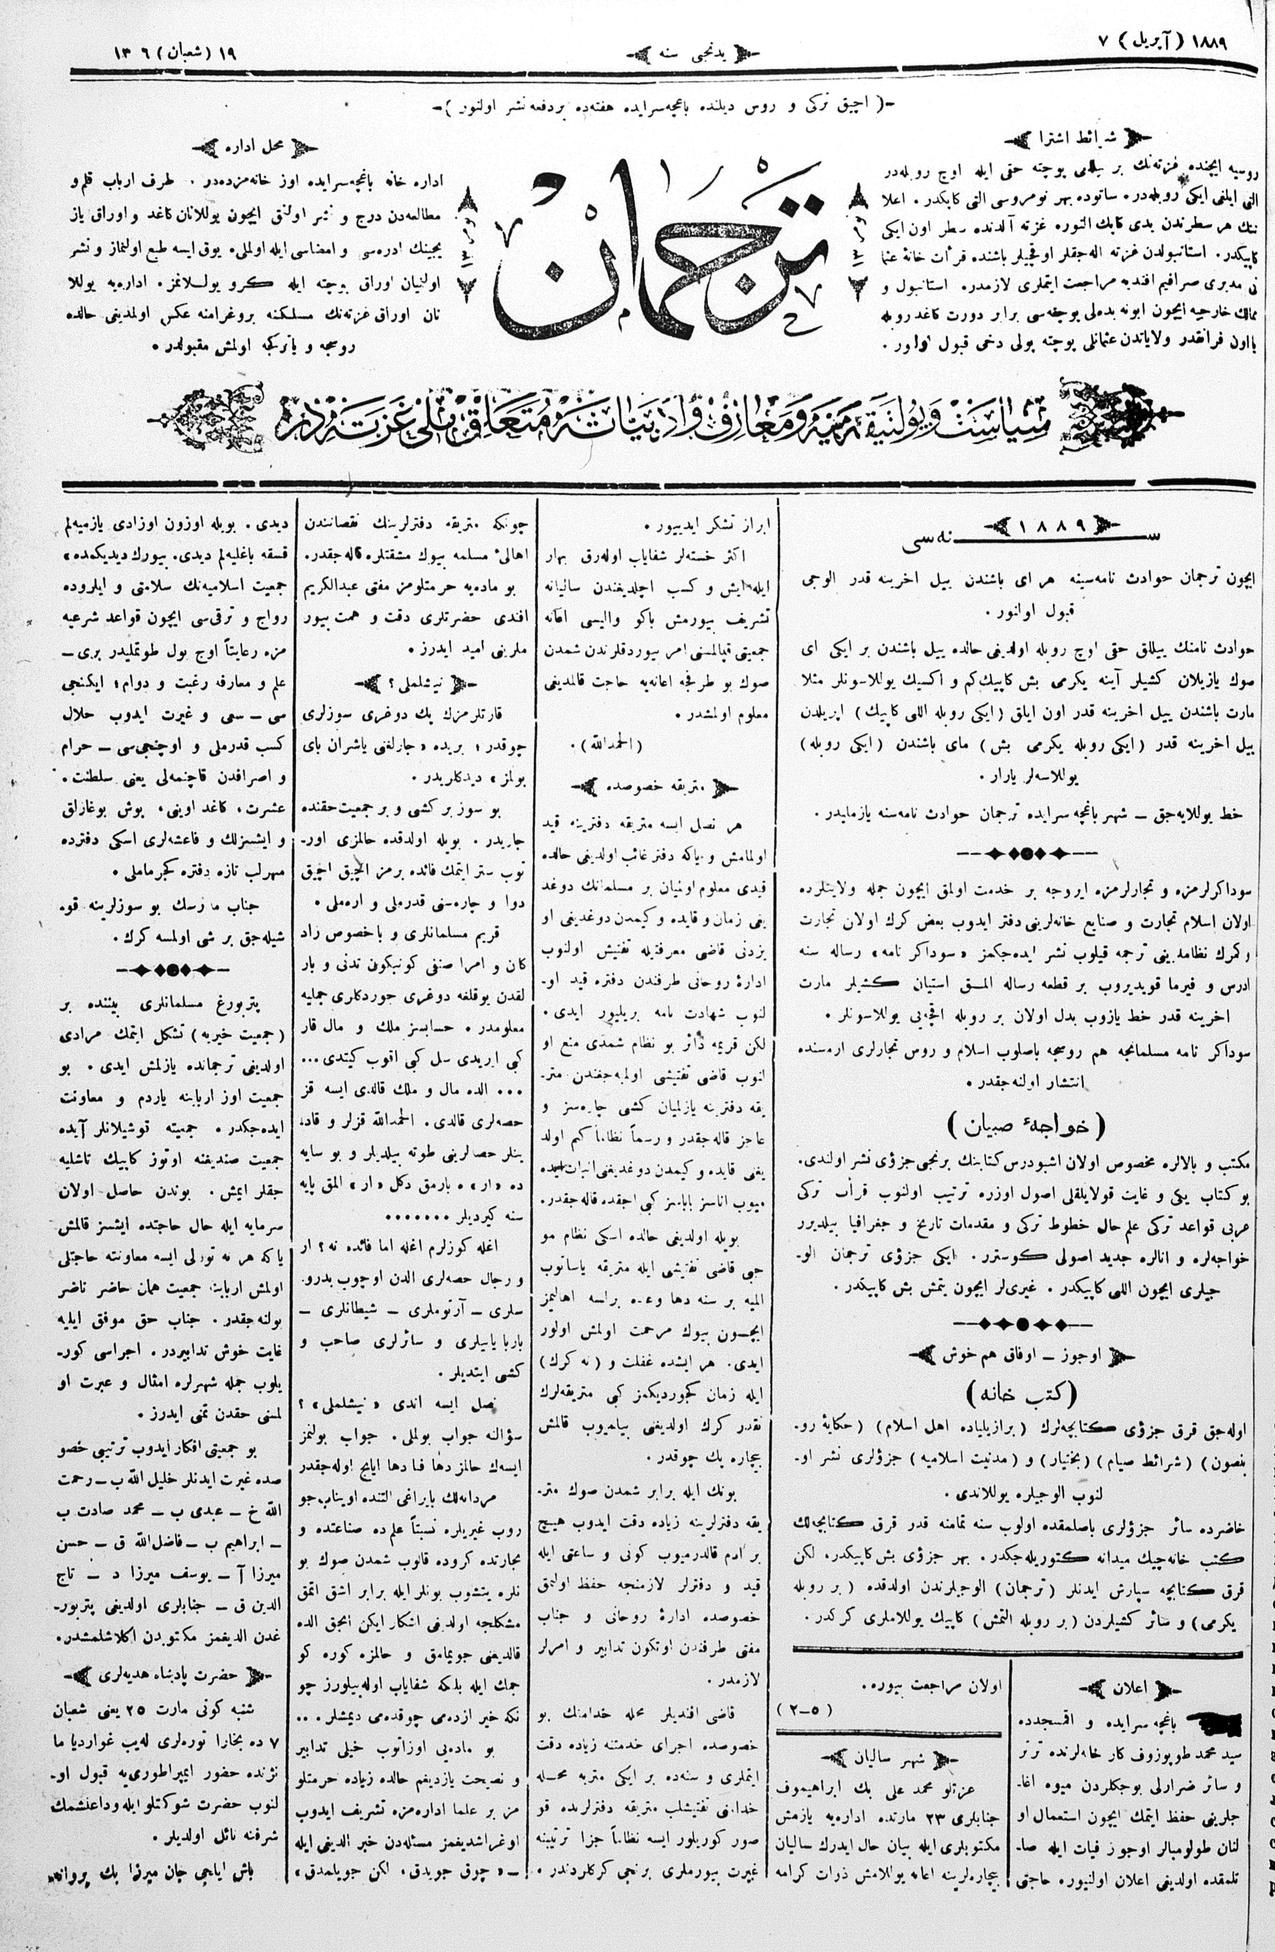 ١٨٨٩ (آپریل) ٧
یدنجی سنه
١٩ (شعبان) ١٣٠٦
-( اچیق ترکی و روس دیلنده باغچه‌سرایده هفته‌ده بر دفعه نشر اولنور )-
شرائط اشترا
روسیه ایچنده غزته‌نك بر ییللق پوچته حقی ایله اوچ روبله‌در
التی ایلغی ایکی روبله‌در. ساتوده بهر نومروسی التی کاپکدر. اعلا
ننك هر سطرندن یدی کاپك النور. غزته آلدنده سطر اون ایکی
کاپیکدر. استانبولدن غزته اله‌جقلر اوقچیلر باشنده قرأت خانهٔ عثما
نی مدیری صرافیم افندیه مراجعت ایتملری لازمدر. استانبول و
ممالك خارجیه ایچون ابونه بدلی پوچته‌سی برابر دورت کاغد روبله
یا اون فرانقدر ولایاتدن عثمانلی پوچته پولی دخی قبول اولور.
ترجمان
محل اداره
اداره خانه باغچه‌سرایده اوز خانه‌مزده‌در. طرف ارباب قلم و
مطالعه‌دن درج و نشر اولنق ایچون یوللانان کاغد و اوراق یاز
یجینك ادره‌سی و امضاسی ایله اولملی. یوق ایسه طبع اولنماز و نشر
اولنیان اوراق پوچته ایله کرو یوللانمز. اداره‌یه یوللا
نان اوراق غزته‌نك مسلکنه پروغرامنه عکس اولمدیغی حالده
روسجه و یا ترکجه اولمش مقبولدر.
سیاست و پولتیقه منیه و معارف و ادبیاته متعلق ملی غزته‌در
١٨٨٩ سنه‌سی
ایچون ترجمان حوادث نامه‌سینه هر ای باشندن ییل اخرینه قدر الوجی
قبول اولنور.
حوادث نامنك ییللق حقی اوچ روبله اولدیغی حالده ییل باشندن بر ایکی ای
صوك یازیلان کشیلر آینه یکرمی بش کاپیك کم و اکسیك یوللاسونلر مثلا
مارت باشندن ییل اخرینه قدر اون ایلق (ایکی روبله اللی کاپیك) اپریلدن
ییل اخرینه قدر (ایکی روبله یکرمی بش) مای باشندن (ایکی روبله)
یوللاسه‌لر یارار.
خط یوللایه‌جق ــ شهر باغچه سرایده ترجمان حوادث نامه‌سنه یازمایدر.
سوداکرلرمزه و تجارلرمزه ایروجه بر خدمت اولمق ایچون جمله ولایتلرده
اولان اسلام تجارت و صنایع خانه‌لرینی دفتر ایدوب بعض کرك اولان تجارت
و کمرك نظاملرینی ترجمه قیلوب نشر ایده‌جکمز «سوداکر نامه» رساله سنه
ادرس و فیرما قویدیروب بر قطعه رساله المق استیان کشیلر مارت
اخرینه قدر خط یازوب بدل اولان بر روبله اقچه‌یی یوللاسونلر.
سوداکر نامه مسلمانجه هم روسجه باصلوب اسلام و روس تجارلری ارەسنده
انتشار اولنه‌جقدر.
(خواجهٔ صبیان)
مکتب و بالالره مخصوص اولان اشبو درس کتابنك برنجی جزؤی نشر اولندی.
بو کتاب یکی و غایت قولایلقلی اصول اوزره ترتیب اولنوب قرأت ترکی
عربی قواعد ترکی علم حال خطوط ترکی و مقدمات تاریخ و جغرافیا بیلدیرر
خواجه‌لره و انالره جدید اصولی کوسترر. ایکی جزؤی ترجمان الو-
جیلری ایچون اللی کاپیکدر. غیری‌لر ایچون یتمش بش کاپیکدر.
اوجوز ــ اوفاق هم خوش
(کتب خانه)
اوله‌جق قرق جزؤی کتابچه‌لرك (برازیلیاده اهل اسلام) (حکایهٔ رو-
بنصون) (شرائط صیام) (بختیار) و (مدنیت اسلامیه) جزؤلری نشر او-
لنوب الوجیلره یوللاندی.
حاضرده سائر جزؤلری باصلمقده اولوب سنه تمامنه قدر قرق کتابچه‌لك
کتب خانه‌چیك میدانه کتوریله‌جکدر. بهر جزؤی بش کاپیکدر. لکن
قرق کتابچه سپارش ایدنلر (ترجمان) الوجیلرندن اولدقده (بر روبله
یکرمی) و سائر کشیلردن (بر روبله التمش) کاپیك یوللاملری کرکدر.
اعلان
باغچه سرایده و اقمسجدده
سید محمد طوپوزوف کار خانه‌لرنده ترتر
و سائر ضرارلی بوجکلردن میوه اغا-
جلرینی حفظ ایتمك ایچون استعمال او
لنان طولومبالر اوجوز فیات ایله صا-
تلمقده اولدیغی اعلان اولنیور. حاجتی
اولان مراجعت بیوره.
(٢-٥)
شهر سالیان
عزتلو محمد علی بك ابراهیموف
جنابلری ٢٣ مارتده اداره‌یه یازمش
مکتوبلری ایله بیان حال ایدرك سالیان
بیچاره‌لرینه اعانه یوللامش ذرات کرامه
ابراز تشکر ایدییور.
اکثر خسته‌لر شفایاب اوله‌رق بهار
ایله ایش و کسب اچلدیغندن سالیانه
تشریف بیورمش باکو والیسی اعانه
جمعیتی قپالمسنی امر بیوردقلرندن شمدن
صوك بو طرفجه اعانه‌یه حاجت قالمدیغی
معلوم اولمشدر.
(الحمدالله).
متریقه خصوصده
هر نصل ایسه متریقه دفترینه قید
اولمامش و یاکه دفتر غائب اولدیغی حالده
قیدی معلوم اولنمیان بر مسلمانك دوغد
یغی زمان و قایده و کیمدن دوغدیغی او
یزدنی قاضی معرفتیله تفتیش اولنوب
ادارهٔ روحانی طرفندن دفتره قید او-
لنوب شهادت نامه بریلیور ایدی.
لکن قریمه دائر بو نظام شمدی منع او
لنوب قاضی تفتیشی اولمیه‌جغندن متر-
یقه دفترینه یازلمیان کشی چاره‌سز و
عاجز قاله‌جقدر و رسماً نظاماً کیم اولد
یغی قایده و کیمدن دوغدیغی اثبات ایده
میوب اناسز باباسز کبی اچقده قاله‌جقدر.
بویله اولدیغی حالده اسکی نظام مو
جبی قاضی تفتیشی ایله متریقه یاساتوب
المیه بر سنه دها وعده براسه اهالیمز
ایچون بیوك مرحمت اولمش اولور
ایدی. هر ایشده غفلت و (نه کرك)
ایله زمان کچوردیکمز کبی متریقه‌لرك
نقدر کرك اولدیغنی بیلمیوب قالمش
بیچاره پك چوقدر.
بونك ایله برابر شمدن صوك متر-
یقه دفترلرینه زیاده دقت ایدوب هیچ
بر ادم قالدرمیوب کونی و ساعتی ایله
قید و دفترلر لازمنجه حفظ اولنمق
خصوصده ادارهٔ روحانی و جناب
مفتی طرفندن اوتکون تدابیر و امرلر
لازمدر.
قاضی افندیلر محله خدامنك بو
خصوصده اجرای خدمتنه زیاده دقت
ایتملری و سنه‌ده بر ایکی مرتبه محله
خدامنی تفتیشلب متریقه دفترلرنده قو
صور کوریلور ایسه نظاماً جزا ترتیبنه
غیرت بیورملری برنجی کرکلردندر.
چونکه متریقه دفترلرینك نقصانندن
اهالیٔ مسلمه بیوك مشقتلره قاله‌جقدر.
بو ماده‌یه حرمتلومز مفتی عبدالکریم
افندی حضرتلری دقت و همت بیور
ملرینی امید ایدرز.
نیشلملی؟
قارتلرمزك پك دوغری سوزلری
چوقدر؛ بریده «چارلغنی یاشران بای
بولمز» دیدکلریدر.
بو سوز بر کشی و بر جمعیت حقنده
جاریدر. بویله اولدقده حالمزی اور-
توب ستر ایتمك فائده برمز الچیق اچیق
دوا و چاره‌سنی قدرملی و ارەملی.
قریم مسلمانلری و باخصوص زاد
کان و امرا صنفی کونیکون تدنی و یار
لقدن یوقلغه دوغری جوردکلری جمله‌یه
معلومدر. حسابسز ملك و مال قار
کبی اریدی سل کبی اقوب کیتدی...
... الده مال و ملك قالدی ایسه قز
حصه‌لری قالدی. الحمدالله قزلر و قاد-
ینلر حصه‌لرینی طوته بیلدیلر و بو سایه
ده «ار» ه بارمق دکل «ار» المق پایه
سنه کیردیلر.......
اغله کوزلرم اغله اما فائده نه؟ ار
و رجال حصه‌لری الدن اوچوب بدرو-
سلری ــ آرتوملری ــ شیطانلری ــ
باربایانیلری و سائرلری صاحب و
کشی ایتدیلر.
نصل ایسه اندی «نیشلملی»؟
سؤالنه جواب بولملی. جواب بولنمز
ایسەك حالمز دها فنا دها ایاچ اوله‌جقدر
مردانه‌لك بایراغی التنده اویناب جو
روب غیریلره نسبتاً علم‌ده صناعتده و
تجارتده کروده قالوب شمدن صوك بو
نلره یتشوب بونلر ایله برابر اشق اتمق
مشکلجه اولدیغی اشکار ایکن انجق الده
قالدیغنی جویمامق و حالمزه کوره کو
جمك ایله بلکه شفایاب اوله‌بیلورز چو
نکه خیر ازده‌می چوقده‌می دیمشلر...
بو ماده‌یی اوزاتوب خیلی تدابیر
و نصیحت یازدیغم حالده زیاده حرمتلو
مز بر علما اداره‌مزه تشریف ایدوب
اوغراشدیغمز مسئله‌دن خبر الدیغی ایله
ــ «چوق جویدق. لکن جویلمدق»
دیدی. بویله اوزون اوزادی یازمیه‌لم
قسقه باغلیه‌لم دیدی. بیورك دیدیکمده»
جمعیت اسلامیه‌نك سلامتی و ایلروده
رواج و ترقی‌سی ایچون قواعد شرعیه
مزه رعایتاً اوچ یول طوتملیدر بری ــ
علم و معارفه رغبت و دوام؛ ایکنجی
سی ــ سعی و غیرت ایدوب حلال
کسب قدرملی و اوچنجی‌سی ــ حرام
و اصرافدن قاچنمه‌لی یعنی سلطنت.
عشرت. کاغد اوینی. بوش بوغازلق
و ایشسزلك و فاعشه‌لری اسکی دفترده
مهرلب تازه دفتره کچرماملی.
جناب مدرسك بو سوزلرینه قو-
شیله‌جق بر شی اولمسه کرك.
پتربورغ مسلمانلری بیننده بر
(جمعیت خیریه) تشکل ایتمك مرادی
اولدیغی ترجمانده یازلمش ایدی. بو
جمعیت اوز اربابنه یاردم و معاونت
ایده‌جکدر. جمعیته قوشیلانلر آیده
جمعیت صندیغنه اوتوز کاپیك تاشلیه
جقلر ایمش. بوندن حاصل اولان
سرمایه ایله حال حاجتده ایشسز قالمش
یاکه هر نه تورلی ایسه معاونته حاجتلی
اولمش اربابنه جمعیت همان حاضر ناضر
بولنه‌جقدر. جناب حق موفق ایلیه
غایت خوش تدابیردر. اجراسی کور-
یلوب جمله شهرلره امثال و عبرت او
لمسنی حقدن تمنی ایدرز.
بو جمعیتی افکار ایدوب ترتیبی خصو
صده غیرت ایدنلر خلیل الله ب ــ رحمت
الله خ ــ عبدی ب ــ محمد صادت ب
ــ ابراهیم ب ــ فاضل الله ق ــ حسن
میرزا آ ــ یوسف میرزا د ــ تاج
الدین ق ــ جنابلری اولدیغی پتربور-
غدن الدیغمز مکتوبدن اکلاشلمشدر.
حضرت پادشاه هدیه‌لری
شنبه کونی مارت ٢٥ یعنی شعبان
٧ ده بخارا توره‌لری له‌یب غواردیا ما
نژنده حضور ایمپراطوری‌یه قبول او-
لنوب حضرت شوکتلو ایله وداعلشمك
شرفنه نائل اولدیلر.
باش ایاچی جان میرزا بك پروانه-